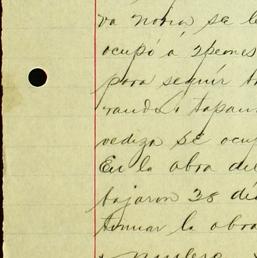 va noria se le
ocupó á 2 peones
para seguir
rando i tapan
vediza se ocup
En la obra del
bajaron 28 día
tinuar la obra